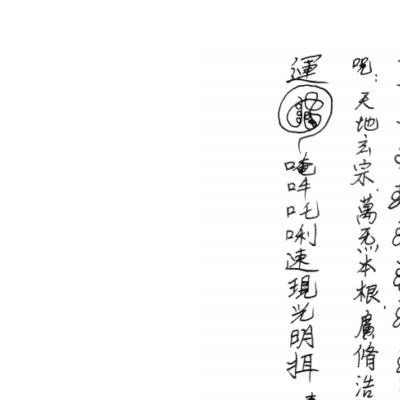 呪：天地玄宗．萬炁本根．廣脩浩
運
唵吽吒唎速現光明揖